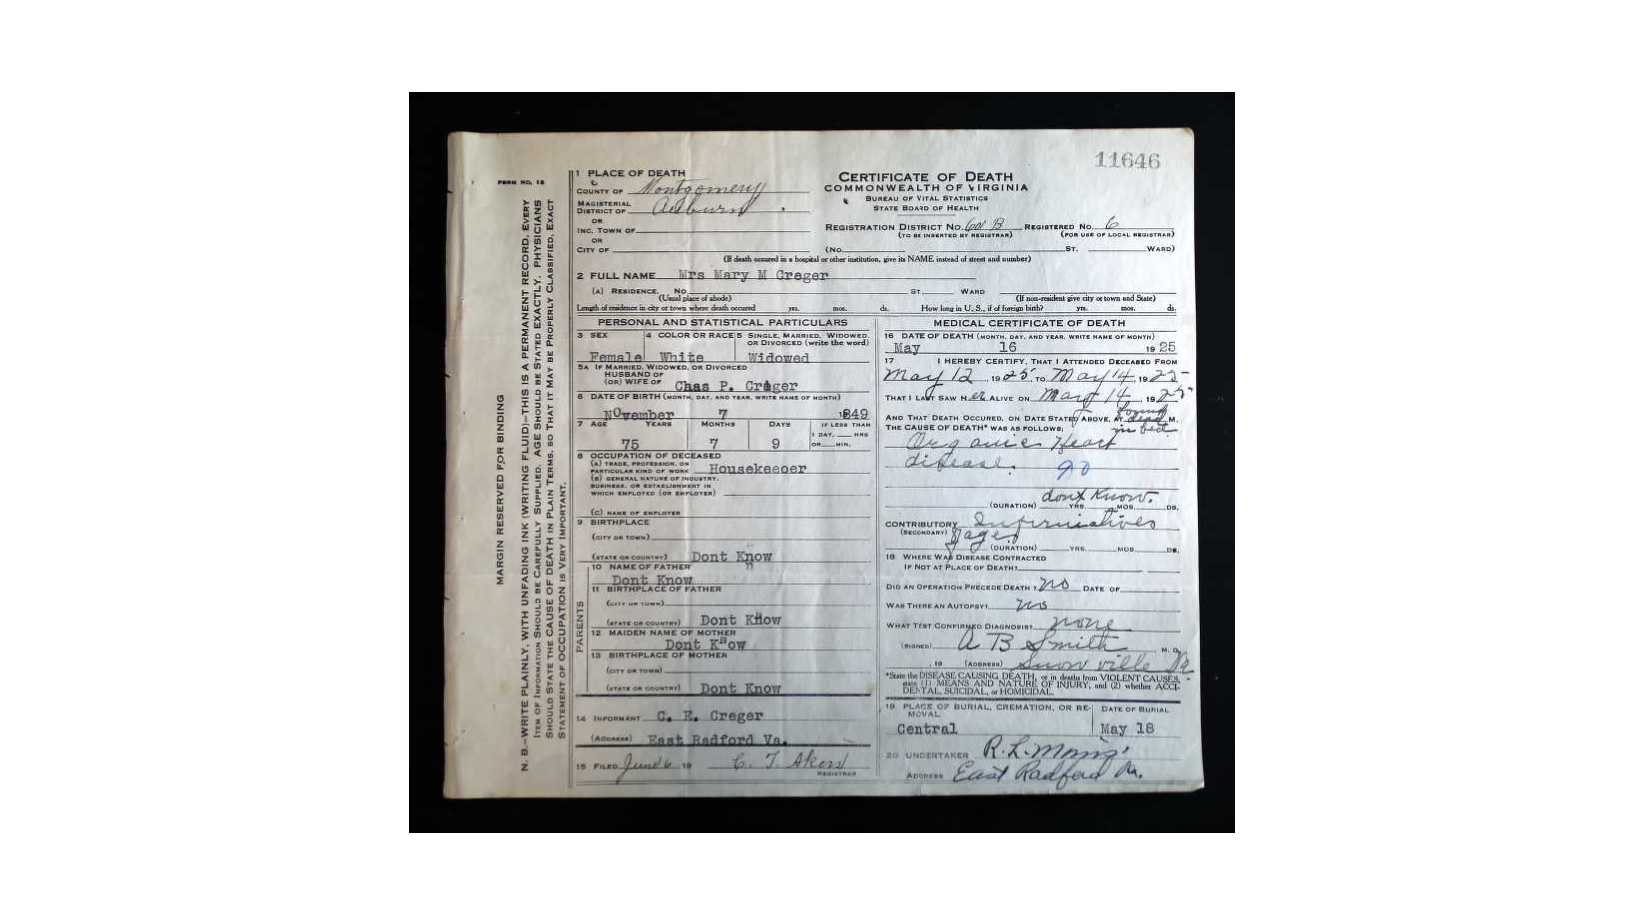 11646
FORM NO. 12
MARGIN RESERVED FOR BINDING
N. B.—WRITE PLAINLY, WITH UNFADING INK (WRITING FLUID)—THIS IS A PERMANENT RECORD. EVERY
ITEM OF INFORMATION SHOULD BE CAREFULLY SUPPLIED. AGE SHOULD BE STATED EXACTLY. PHYSICIANS
SHOULD STATE THE CAUSE OF DEATH IN PLAIN TERMS, SO THAT IT MAY BE PROPERLY CLASSIFIED. EXACT
STATEMENT OF OCCUPATION IS VERY IMPORTANT.
1 PLACE OF DEATH
COUNTY OF Montgomery
MAGISTERIAL
DISTRICT OF Auburn
OR
INC. TOWN OF
OR
CITY OF
CERTIFICATE OF DEATH
COMMONWEALTH OF VIRGINIA
BUREAU OF VITAL STATISTICS
STATE BOARD OF HEALTH
REGISTRATION DISTRICT NO. REGISTERED NO. 6
(TO BE INSERTED BY REGISTRAR) (FOR USE OF LOCAL REGISTRAR)
(NO. ST. WARD)
(If death occured in a hospital or other institution, give its NAME instead of street and number)
2 FULL NAME Mrs Mary M Creger
(A) RESIDENCE. NO. ST. WARD
(Usual place of abode) (If non-resident give city or town and State)
Length of residence in city or town where death occured yrs. mos. ds. How long in U. S., if of foreign birth? yrs. mos. ds.
PERSONAL AND STATISTICAL PARTICULARS
3 SEX 4 COLOR OR RACE 5 SINGLE, MARRIED, WIDOWED,
OR DIVORCED (write the word)
Female White Widowed
5A IF MARRIED, WIDOWED, OR DIVORCED
HUSBAND OF
(OR) WIFE OF Chas P. Creger
6 DATE OF BIRTH (MONTH, DAY, AND YEAR, WRITE NAME OF MONTH)
November 7 1849
7 AGE YEARS MONTHS DAYS IF LESS THAN
1 DAY, HRS
OR MIN.
75 7 9
8 OCCUPATION OF DECEASED
(A) TRADE, PROFESSION, OR
PARTICULAR KIND OF WORK Housekeeoer
(B) GENERAL NATURE OF INDUSTRY,
BUSINESS, OR ESTABLISHMENT IN
WHICH EMPLOYED (OR EMPLOYER)
(C) NAME OF EMPLOYER
9 BIRTHPLACE
(CITY OR TOWN)
(STATE OR COUNTRY) Dont Know
PARENTS
10 NAME OF FATHER
Dont Know
11 BIRTHPLACE OF FATHER
(CITY OR TOWN)
(STATE OR COUNTRY) Dont Know
12 MAIDEN NAME OF MOTHER
Dont Know
13 BIRTHPLACE OF MOTHER
(CITY OR TOWN)
(STATE OR COUNTRY) Dont Know
14 INFORMANT C. E. Creger
(ADDRESS) East Radford Va.
15 FILED June 6 19 C. T. Akers
REGISTRAR
MEDICAL CERTIFICATE OF DEATH
16 DATE OF DEATH (MONTH, DAY, AND YEAR, WRITE NAME OF MONTH)
May 16 1925
17 I HEREBY CERTIFY, THAT I ATTENDED DECEASED FROM
May 12, 1925, TO May 14, 1925
THAT I LAST SAW HER ALIVE ON May 14, 1925
AND THAT DEATH OCCURED, ON DATE STATED ABOVE, AT found dead M.
THE CAUSE OF DEATH* WAS AS FOLLOWS: in bed
Organic Heart
disease. 90
dont Know.
(DURATION) YRS. MOS. DS.
CONTRIBUTORY
(SECONDARY) age
(DURATION) YRS. MOS. DS.
18 WHERE WAS DISEASE CONTRACTED
IF NOT AT PLACE OF DEATH?
DID AN OPERATION PRECEDE DEATH? no DATE OF
WAS THERE AN AUTOPSY? no
WHAT TEST CONFIRMED DIAGNOSIS? none
(SIGNED) A B Smith M. D.
, 19 (ADDRESS) Snowville Va
*State the DISEASE CAUSING DEATH, or in deaths from VIOLENT CAUSES,
state (1) MEANS AND NATURE OF INJURY, and (2) whether ACCI-
DENTAL, SUICIDAL, or HOMICIDAL.
19 PLACE OF BURIAL, CREMATION, OR RE-
MOVAL
DATE OF BURIAL
Central May 18
20 UNDERTAKER R. L.
ADDRESS East Radford Va.